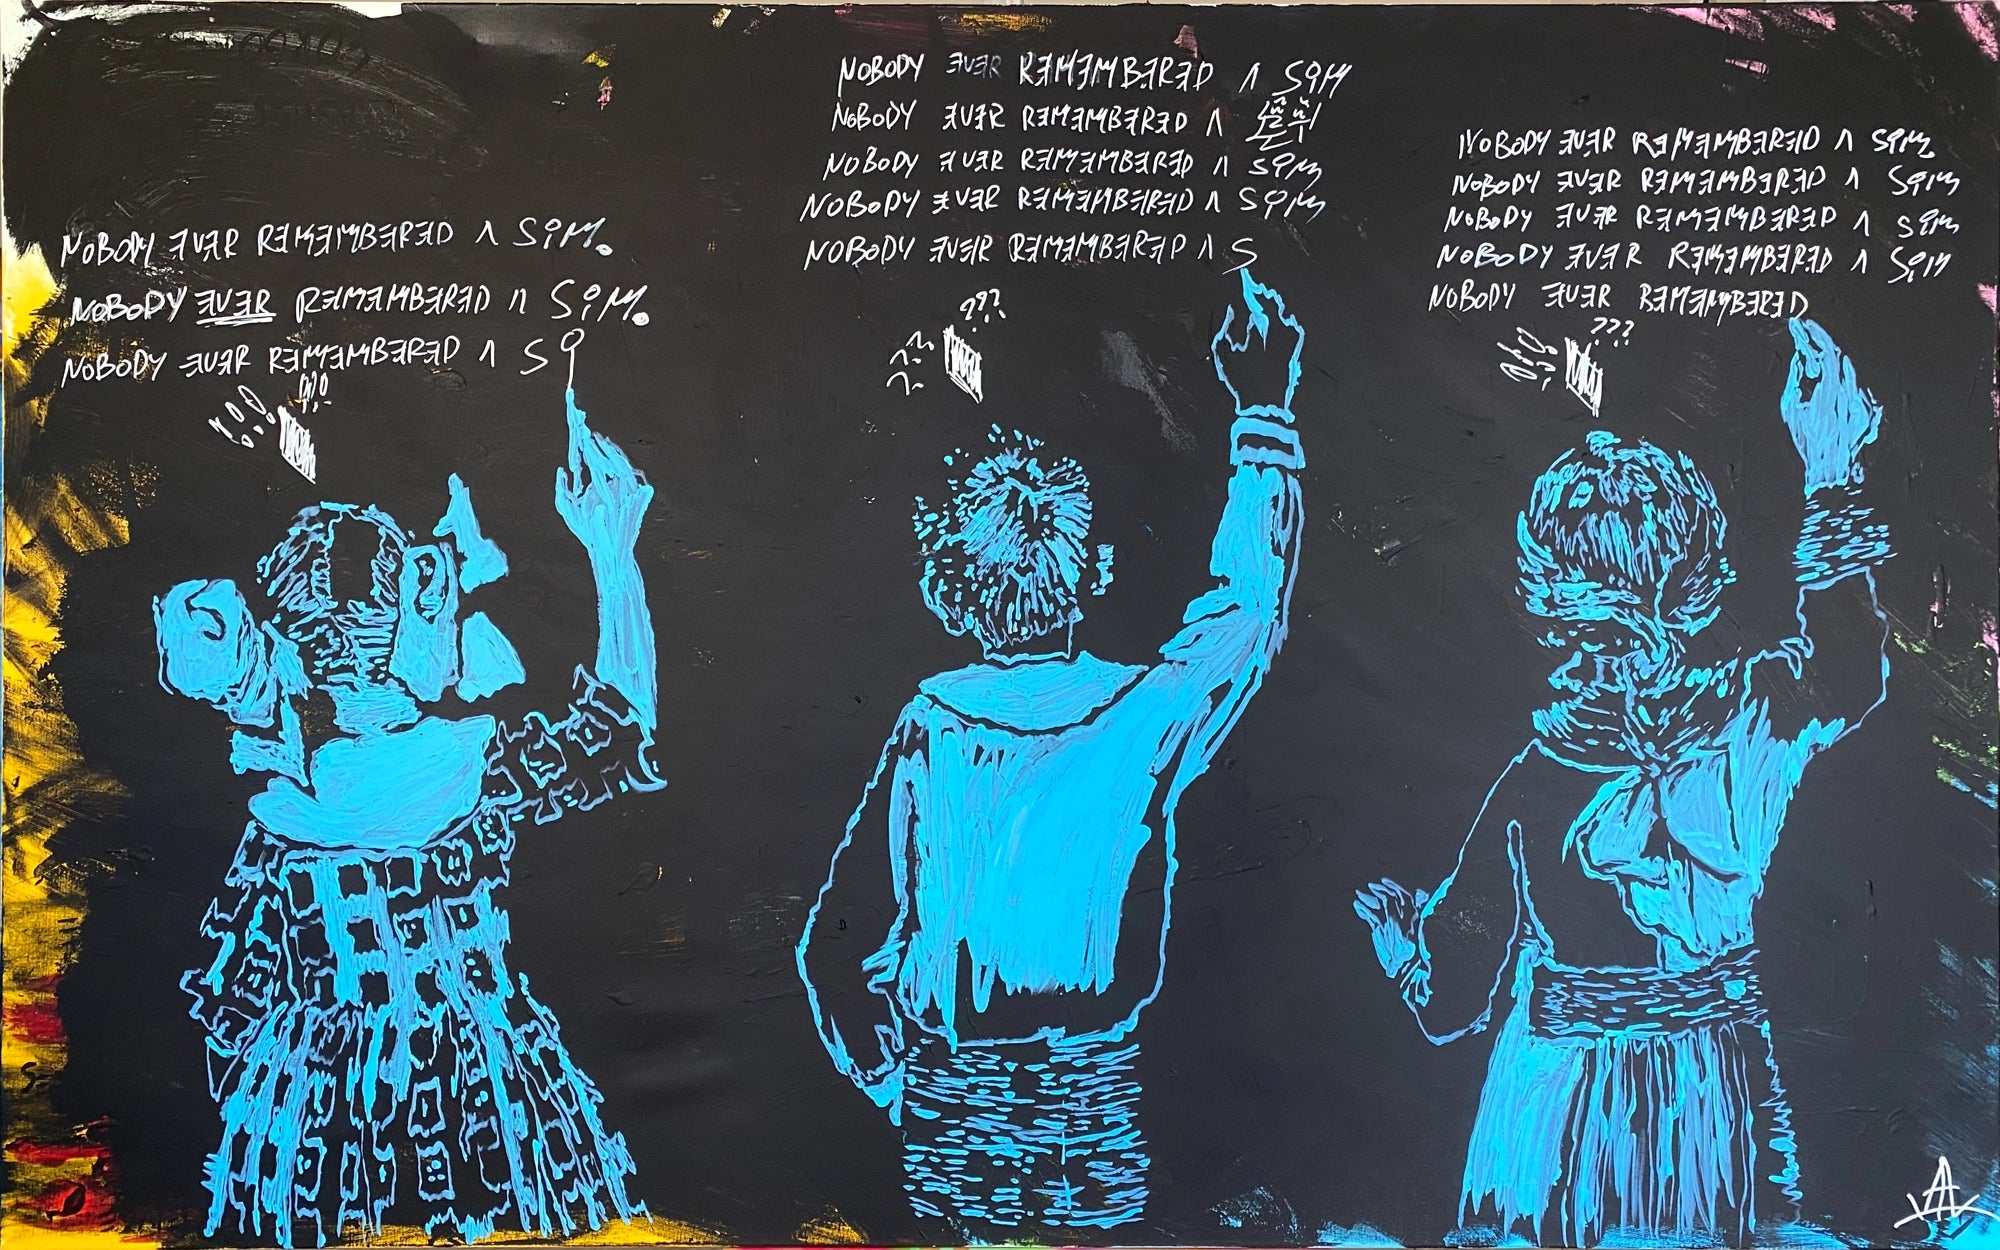 NOBODY EVER REMEMBERED A SiM.
NOBODY EVER REMEMBERED A SiM.
NOBODY EVER REMEMBERED A S
???
???
NOBODY EVER REMEMBERED A SiM
NOBODY EVER REMEMBERED A
NOBODY EVER REMEMBERED A SiM
NOBODY EVER REMEMBERED A SiM
NOBODY EVER REMEMBERED A S
???
???
NOBODY EVER REMEMBERED A SiM
NOBODY EVER REMEMBERED A SiM
NOBODY EVER REMEMBERED A SiM
NOBODY EVER REMEMBERED A SiM
NOBODY EVER REMEMBERED
???